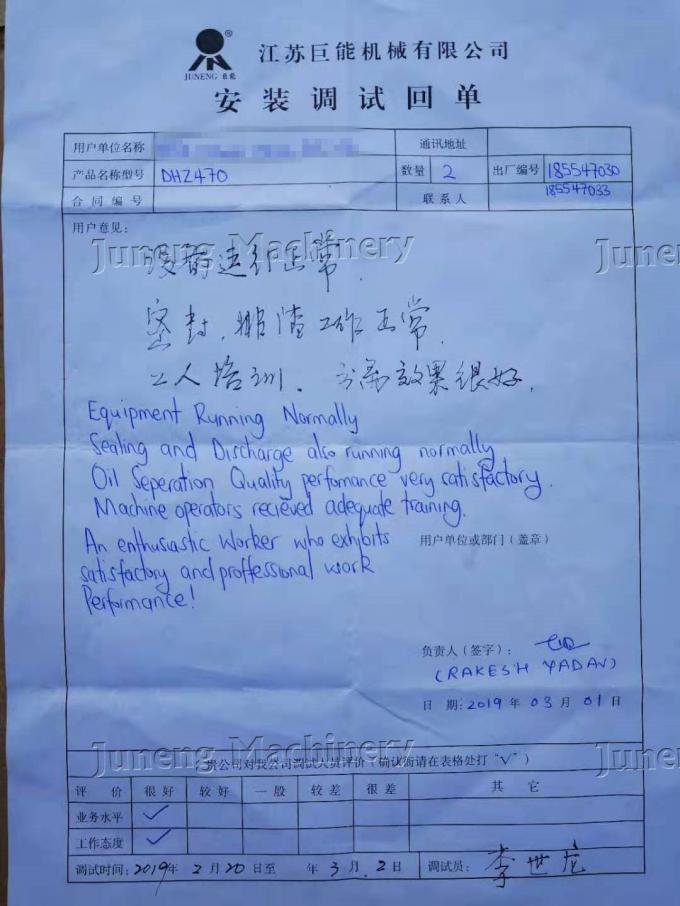 JUNENG 巨能
江苏巨能机械有限公司
安装调试回单
用户单位名称 通讯地址
产品名称型号 DHZ470 数量 2 出厂编号 185547030
185547033
合同编号 联系人
用户意见:
Juneng Machinery
Juneng
设备运行正常.
密封,排渣工作正常.
工人培训. 分离效果很好.
Equipment Running Normally
Sealing and Discharge also running normally
Oil Seperation Quality perfomance very satisfactory.
Machine operators recieved adequate training.
An enthusiastic worker who exhibits
satisfactory and proffessional work
Performance!
用户单位或部门(盖章)
负责人(签字):
(RAKESH YADAV)
日 期:2019年03月01日
Juneng Machinery
Juneng Machinery
(贵公司对我公司调试人员评价,确认后请在表格处打"√")
评 价 很好 较好 一般 较差 很差 其 它
业务水平 ✓
工作态度 ✓
调试时间:2019年2月20日至 年3月.2日 调试员:李世龙